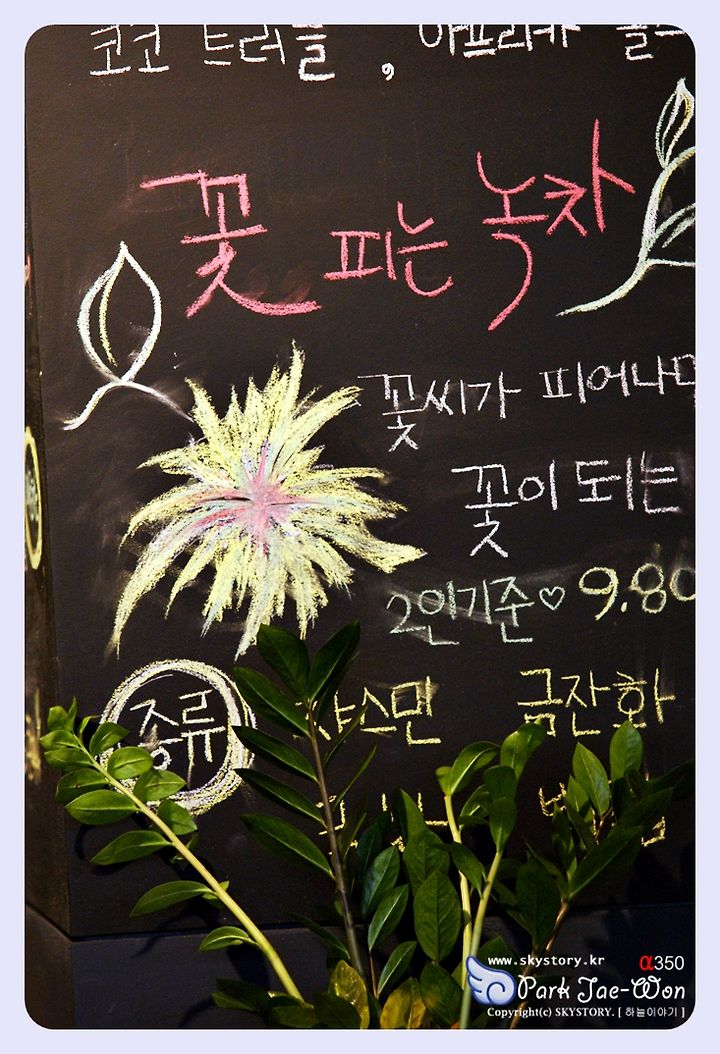 코코 트러플, 아프리카
꽃 피는 녹차
꽃씨가 피어나
꽃이 되는
2인기준♡ 9.80
종류 쟈스민 금잔화
www.skystory.kr α350
Park Jae-Won
Copyright(c) SKYSTORY. [ 하늘이야기 ]